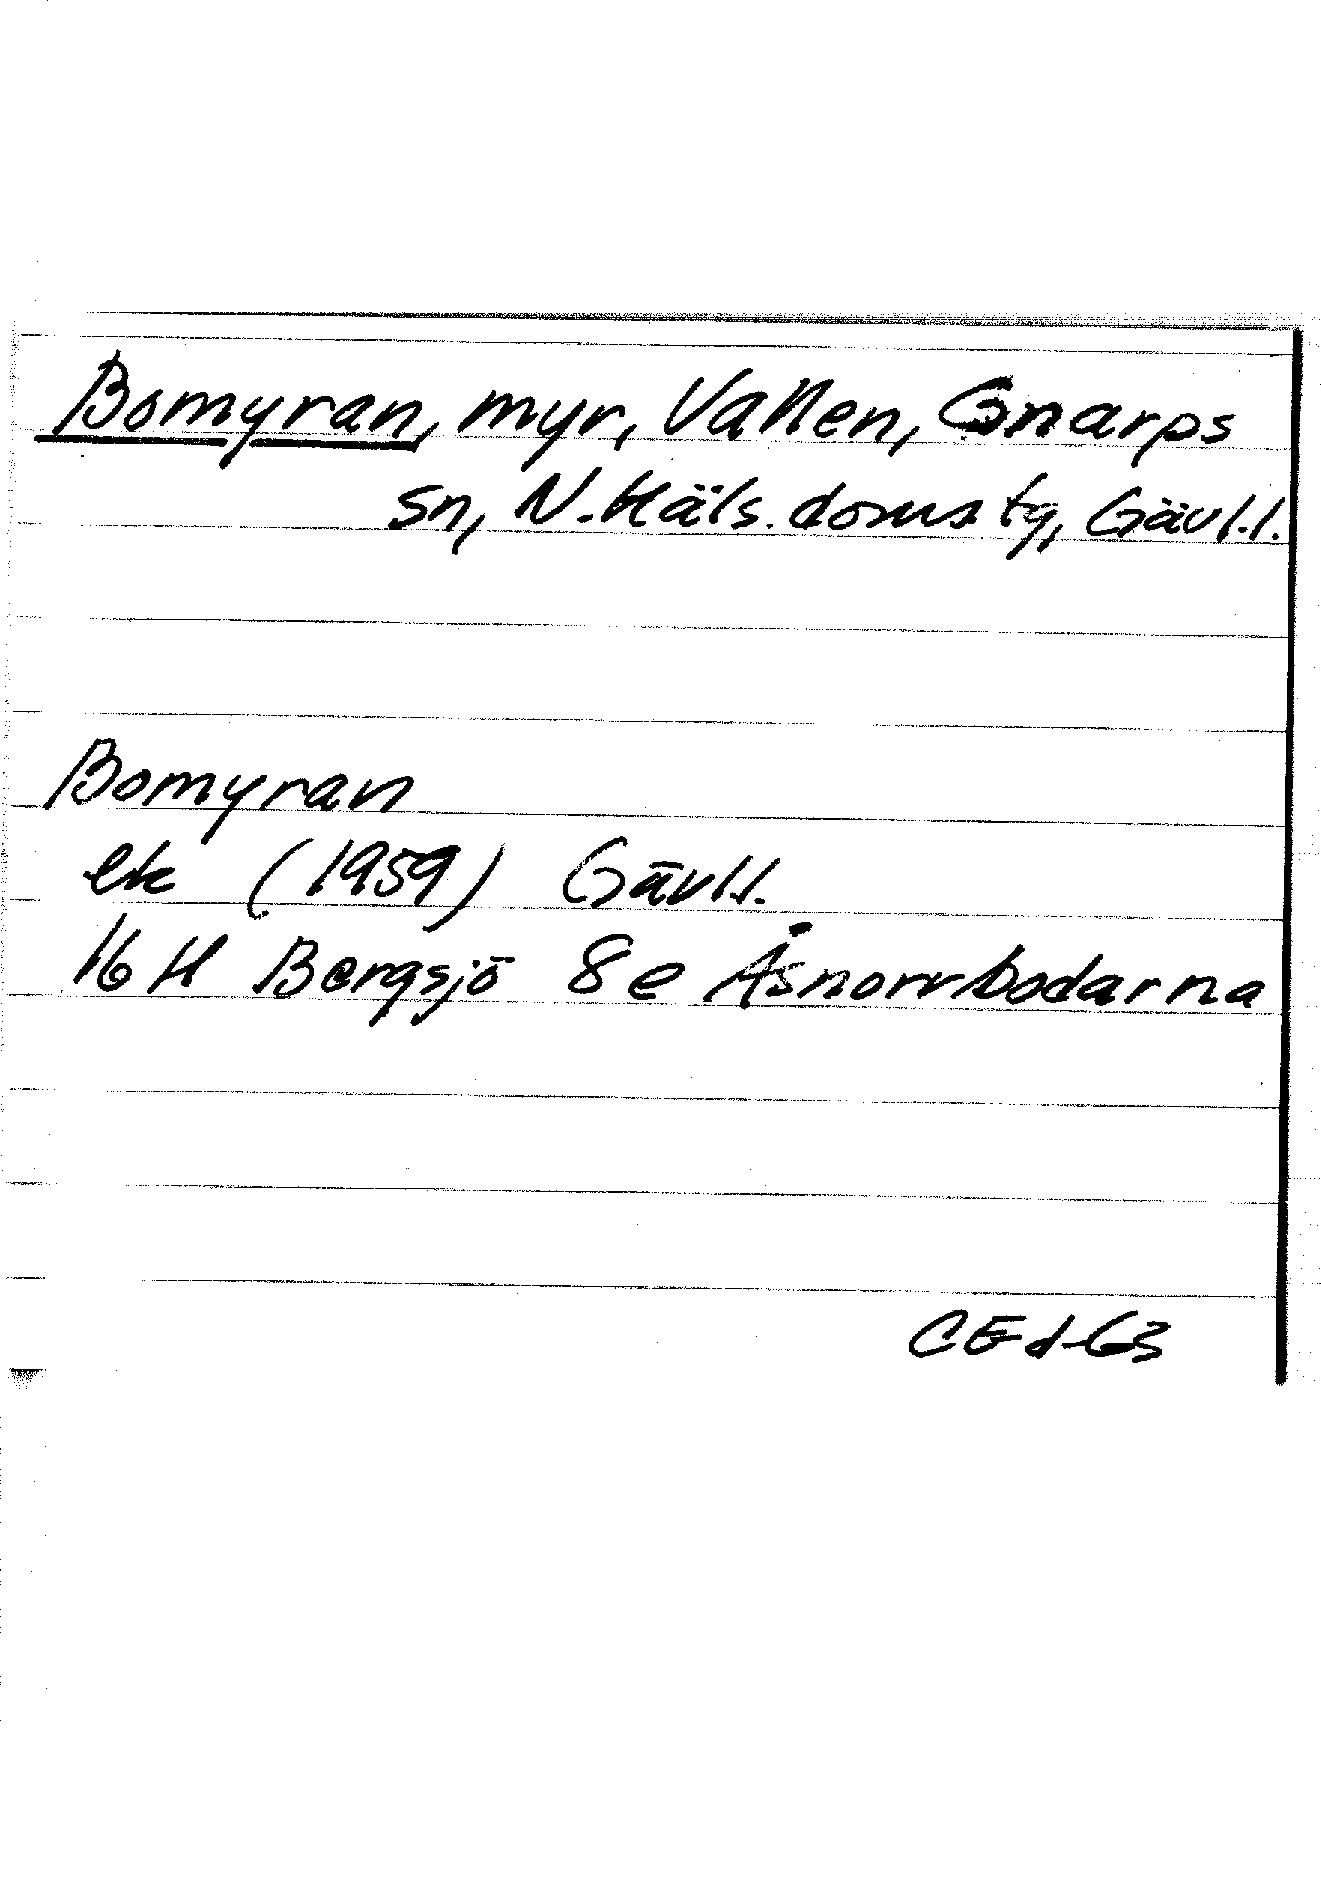 Bomyran, myr, Vallen, Gnarps
sn, N. Häls. doms tg, Gävl.l.
Bomyran
ek (1959) Gävl.l.
16 H Bergsjö 8e Åsnorrbodarna
CEd-63